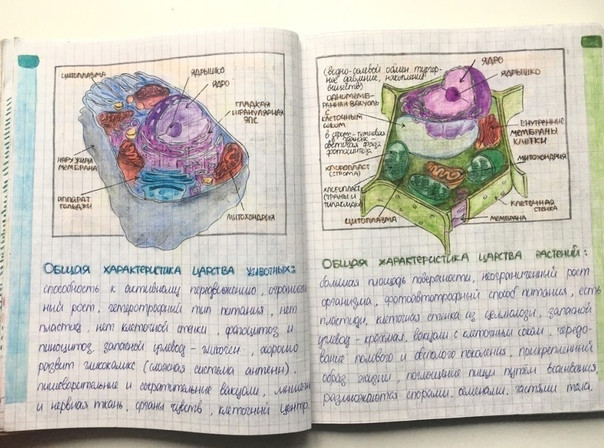 ЦИТОПЛАЗМА
ЯДРЫШКО
ЯДРО
ГЛАДКАЯ
И ГРАНУЛЯРНАЯ
ЭПС
НАРУЖНАЯ
МЕМБРАНА
АППАРАТ
ГОЛЬДЖИ
МИТОХОНДРИЯ
ОБЩАЯ ХАРАКТЕРИСТИКА ЦАРСТВА ЖИВОТНЫХ:
способность к активному передвижению, ограничен
ный рост, гетеротрофный тип питания, нет
пластид, нет клеточной стенки, фагоцитоз и
пиноцитоз. запасной углевод - гликоген, хорошо
развит гликокаликс (сложная система антенн).
пищеварительные и сократительные вакуоли,
и нервная ткань, органы чувств, клеточный центр.
(водно-солевой обмен, тургор-
ное давление, накопление
веществ)
ОДНОМЕМБ-
РАННАЯ ВАКУОЛЬ
С
КЛЕТОЧНЫМ
СОКОМ
ХЛОРОПЛАСТ
(СТРОМА)
ХЛОРОПЛАСТ
(ГРАНЫ И
ТИЛАКОИДЫ)
ЦИТОПЛАЗМА
ЯДРО
ЯДРЫШКО
ВНУТРЕННИЕ
МЕМБРАНЫ
КЛЕТКИ
МИТОХОНДРИЯ
КЛЕТОЧНАЯ
СТЕНКА
МЕМБРАНА
ОБЩАЯ ХАРАКТЕРИСТИКА ЦАРСТВА РАСТЕНИЙ:
большая площадь поверхности, неограниченный рост
организма, фотоавтотрофный способ питания, есть
пластиды, клеточная стенка из целлюлозы, запасной
углевод - крахмал, вакуоли с клеточным соком, чередо-
вание полового и бесполого поколения, прикрепленный
образ жизни, поглощение пищи путём всасывания,
размножаются спорами, семенами, частями тела.